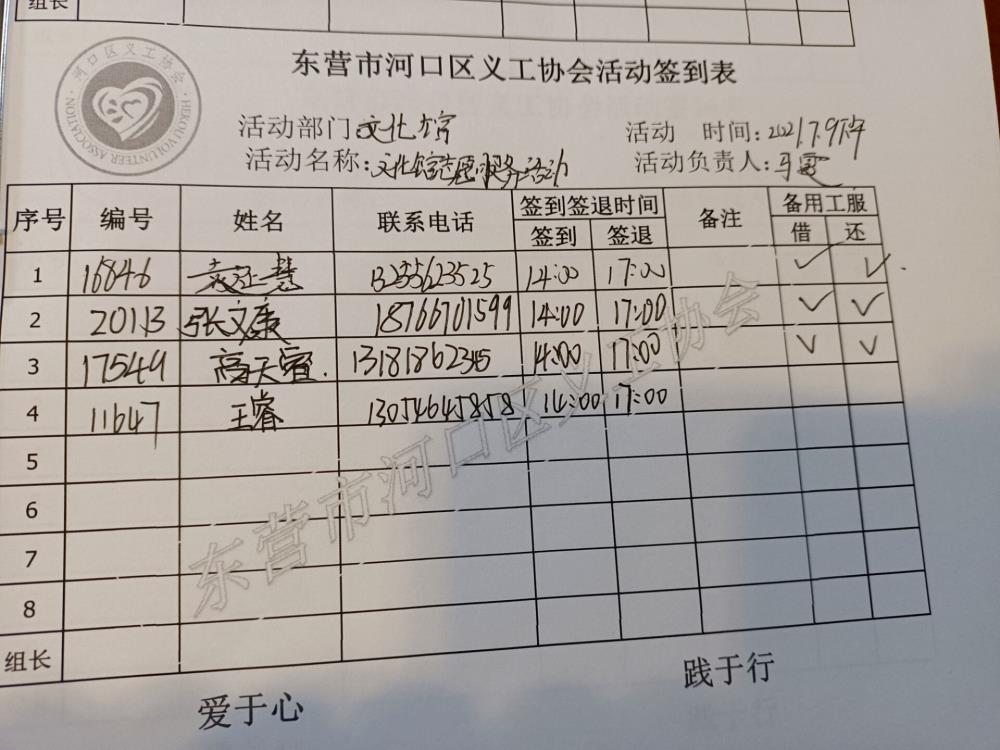 组长
河口区义工协会
HEKOU VOLUNTEER ASSOCIATION
东营市河口区义工协会活动签到表
活动部门:文化馆 活动 时间:2021.7.9下午
活动名称:文化馆志愿服务活动 活动负责人:马雯
序号 编号 姓名 联系电话 签到签退时间 备注 备用工服
签到 签退 借 还
1 16846 13235623525 14:00 17:00 ✓ ✓
2 20113 张文康 18766701599 14:00 17:00 ✓ ✓
3 17549 高天宵 13181862345 14:00 17:00 ✓ ✓
4 11647 王睿 13054645858 14:00 17:00
5
6
7
8
组长
东营市河口区义工协会
爱于心 践于行